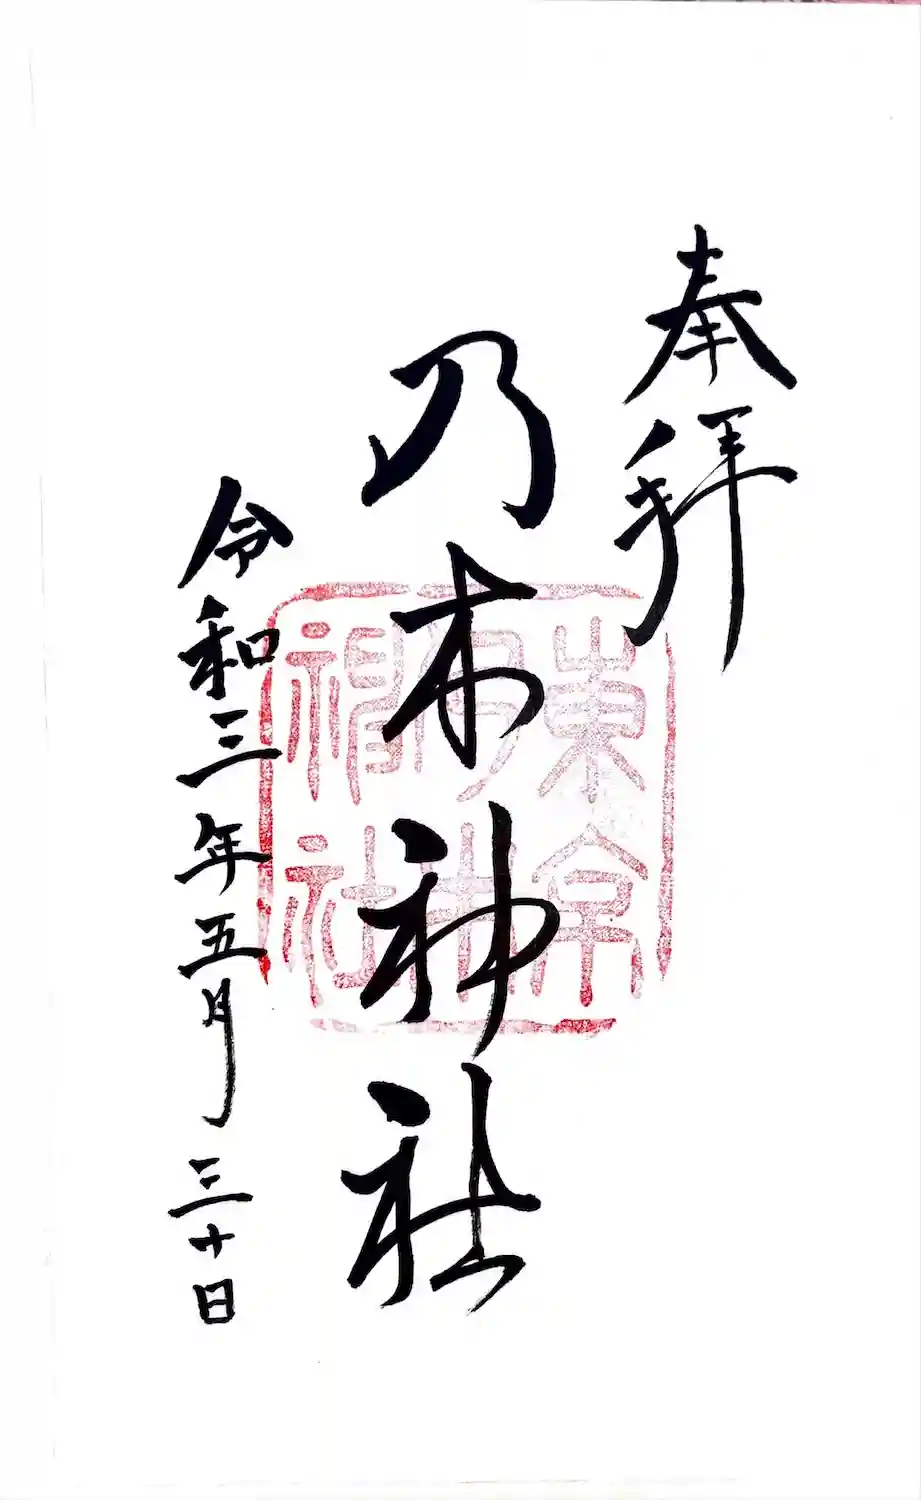 奉拝
乃木神社
令和三年五月三十日
東京乃木神社